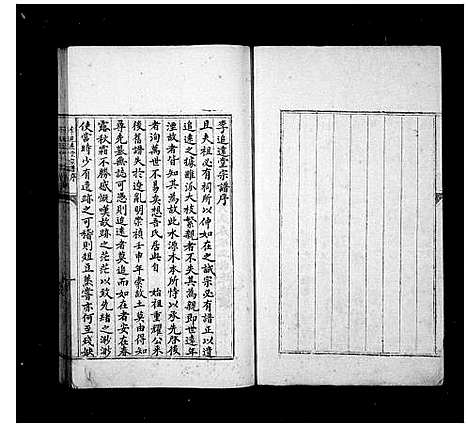 李追遠堂宗譜序
且夫祖必有祠所以伸如在之誠宗必有譜正以遺
追遠之據雖派大枝繁親者不失其為親即世遠年
湮故者皆知其為故此水源木本所恃以承先啓後
者洵萬世不易矣想吾氏居此自 始祖重耀公來
後舊譜失於遼亂明崇禎壬申年索故土莫由得知
尊先墓無誌可憑則追遠者莫追而如在者安在春
露秋霜不勝感慨嘆故跡之茫茫以致先緒之渺渺
使當時少有遺跡之可稽則俎豆蒸嘗亦何至殘缺
序